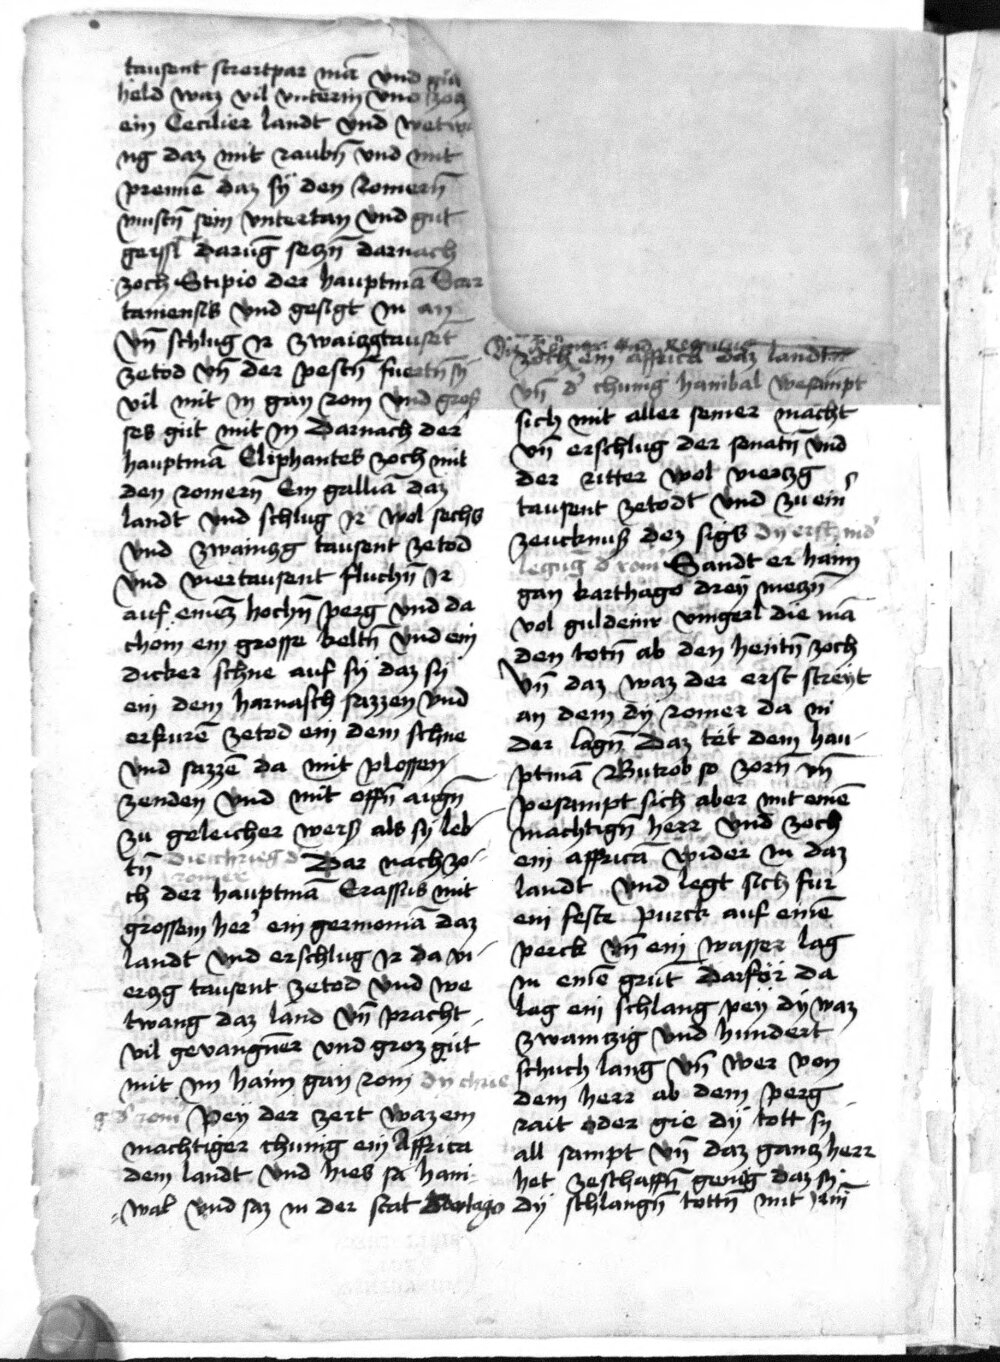 tausent streitpar mā vnd
held waz vil vnterm vnd zoch
ein Cecilier landt vnd wetw
ng daz mit raubn̄ vnd mit
prennē daz sÿ den Romern̄
mustn̄ sein vntertan vnd gut
geissl darūg setzn̄ darnach
zoch Stipio der hauptmā Car
taniensis vnd gesigt in an
vn̄ schlug ir zwaitzgtausēt
zetod vn̄ der pestn̄ fuertn̄ sÿ
vil mit in gan rom vnd gros
ses gut mit in Darnach der
hauptmā Eliphantes zoch mit
den romern̄ Ein galliā daz
landt vnd schlug ir wol sechs
vnd zwaintzg tausent zetod
vnd viertausent fluchn̄ ir
auf einez hochn̄ perg vnd da
chom ein grosse keltn̄ vnd ein
dicker schne auf sÿ daz sÿ
ein dem harnasch sazzen vnd
erfurē zetod ein dem schne
vnd sazzē da mit plossen
zenden vnd mit offn̄ augn̄
zu geleicher weis als sÿ leb
tn̄ Die chrieg d' romer Dar nach zo
ch der hauptmā Crassus mit
grossem her' ein germoniā daz
landt vnd erschlug ir da vi
ertzg tausent zetod vnd we
twang daz land vn̄ pracht
vil gevangner vnd groz gut
mit im haim gan rom Dy chrie
g d' rom Peÿ der zeit waz ein
machtiger chunig ein Affrica
dem landt vnd hies sa hani
wal vnd saz in der stat Kartago
Dy Romer vnd Regulus
zoch ein affrica daz landt
vn̄ d' chunig hanibal wesampt
sich mit aller seiner macht
vn̄ erschlug der senatn̄ vnd
der ritter wol viertzg
tausent zetodt vnd zu ein'
zeucknuß dez sigs dy erst nid'
legūg d' rom Sandt er haim
gan karthago dreÿ metzn̄
vol guldeinr vingerl die mā
den totn̄ ab den hentn̄ zoch
vn̄ daz waz der erst streÿt
an dem dÿ romer da ni
der lagn̄ Daz tet dem hau
ptmā Butrob so zorn vn̄
pesampt sich aber mit einē
machtign̄ herr vnd zoch
ein affricā wider in daz
landt vnd legt sich fur
ein feste purck auf einē
perck vn̄ ein wasser lag
in einē grūt darför da
lag ein schlang peÿ dÿ waz
zwaintzig vnd hundert
schuch lang vn̄ wer von
dem herr ab dem perg
rait oder gie dÿ tott sÿ
all sampt vn̄ daz gantz herr
het zeschaffn̄ genūg daz sÿ
dÿ schlangn̄ tottn̄ mit irn̄